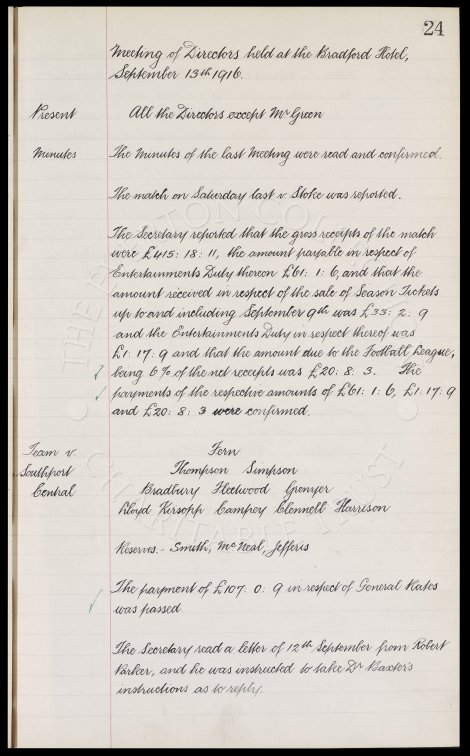 24
Meeting of Directors held at the Bradford Hotel,
September 13th 1916.
Present All the Directors except Mr Green
Minutes The Minutes of the last Meeting were read and confirmed.
The match on Saturday last v Stoke was reported.
The Secretary reported that the gross receipts of the match
were £415: 18: 11, the amount payable in respect of
Entertainments Duty thereon £61: 1: 6, and that the
amount received in respect of the sale of Season Tickets
up to and including September 9th was £33: 2: 9
and the Entertainments Duty in respect thereof was
£1: 17: 9 and that the amount due to the Football League,
being 6% of the net receipts was £20: 8: 3. The
payments of the respective amounts of £61: 1: 6, £1: 17: 9
and £20: 8: 3 were confirmed.
Team v Fern
Southport Thompson Simpson
Central Bradbury Fleetwood Grenyer
Lloyd Kirsopp Campey Clennell Harrison
Reserves:- Smith, McNeal, Jefferis
The payment of £107: 0: 9 in respect of General Rates
was passed.
The Secretary read a letter of 12th September from Robert
Parker, and he was instructed to take Dr Baxter's
instructions as to reply.
THE EVERTON COLLECTION
CHARITABLE TRUST